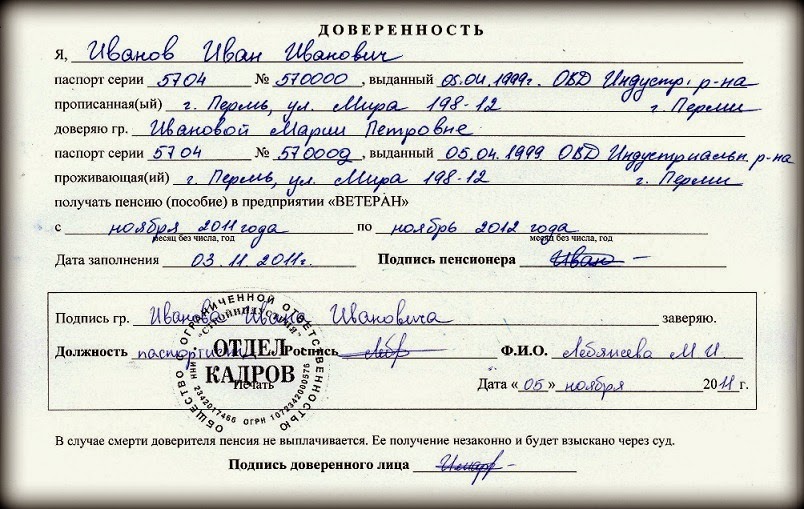 ДОВЕРЕННОСТЬ
Я, Иванов Иван Иванович
паспорт серии 5704 № 570000, выданный 05.04.1999г. ОВД Индустр. р-на
прописанная(ый) г. Пермь, ул. Мира 198-12 г. Перми
доверяю гр. Ивановой Марии Петровне
паспорт серии 5704 № 570002, выданный 05.04.1999 ОВД Индустриальн. р-на
проживающая(ий) г. Пермь, ул. Мира 198-12 г. Перми
получать пенсию (пособие) в предприятии «ВЕТЕРАН»
с ноября 2011 года по ноябрь 2012 года
месяц без числа, год месяц без числа, год
Дата заполнения 03.11.2011г. Подпись пенсионера Иван
Подпись гр. Иванова Ивана Ивановича заверяю.
Должность паспортист Роспись Ф.И.О. Лебяжева М И
Печать Дата «05» ноября 2011 г.
ОБЩЕСТВО С ОГРАНИЧЕННОЙ ОТВЕТСТВЕННОСТЬЮ
"СТРОЙИНДУСТРИЯ"
ОТДЕЛ
КАДРОВ
ИНН 2342017466 ОГРН 1072342000576
В случае смерти доверителя пенсия не выплачивается. Ее получение незаконно и будет взыскано через суд.
Подпись доверенного лица